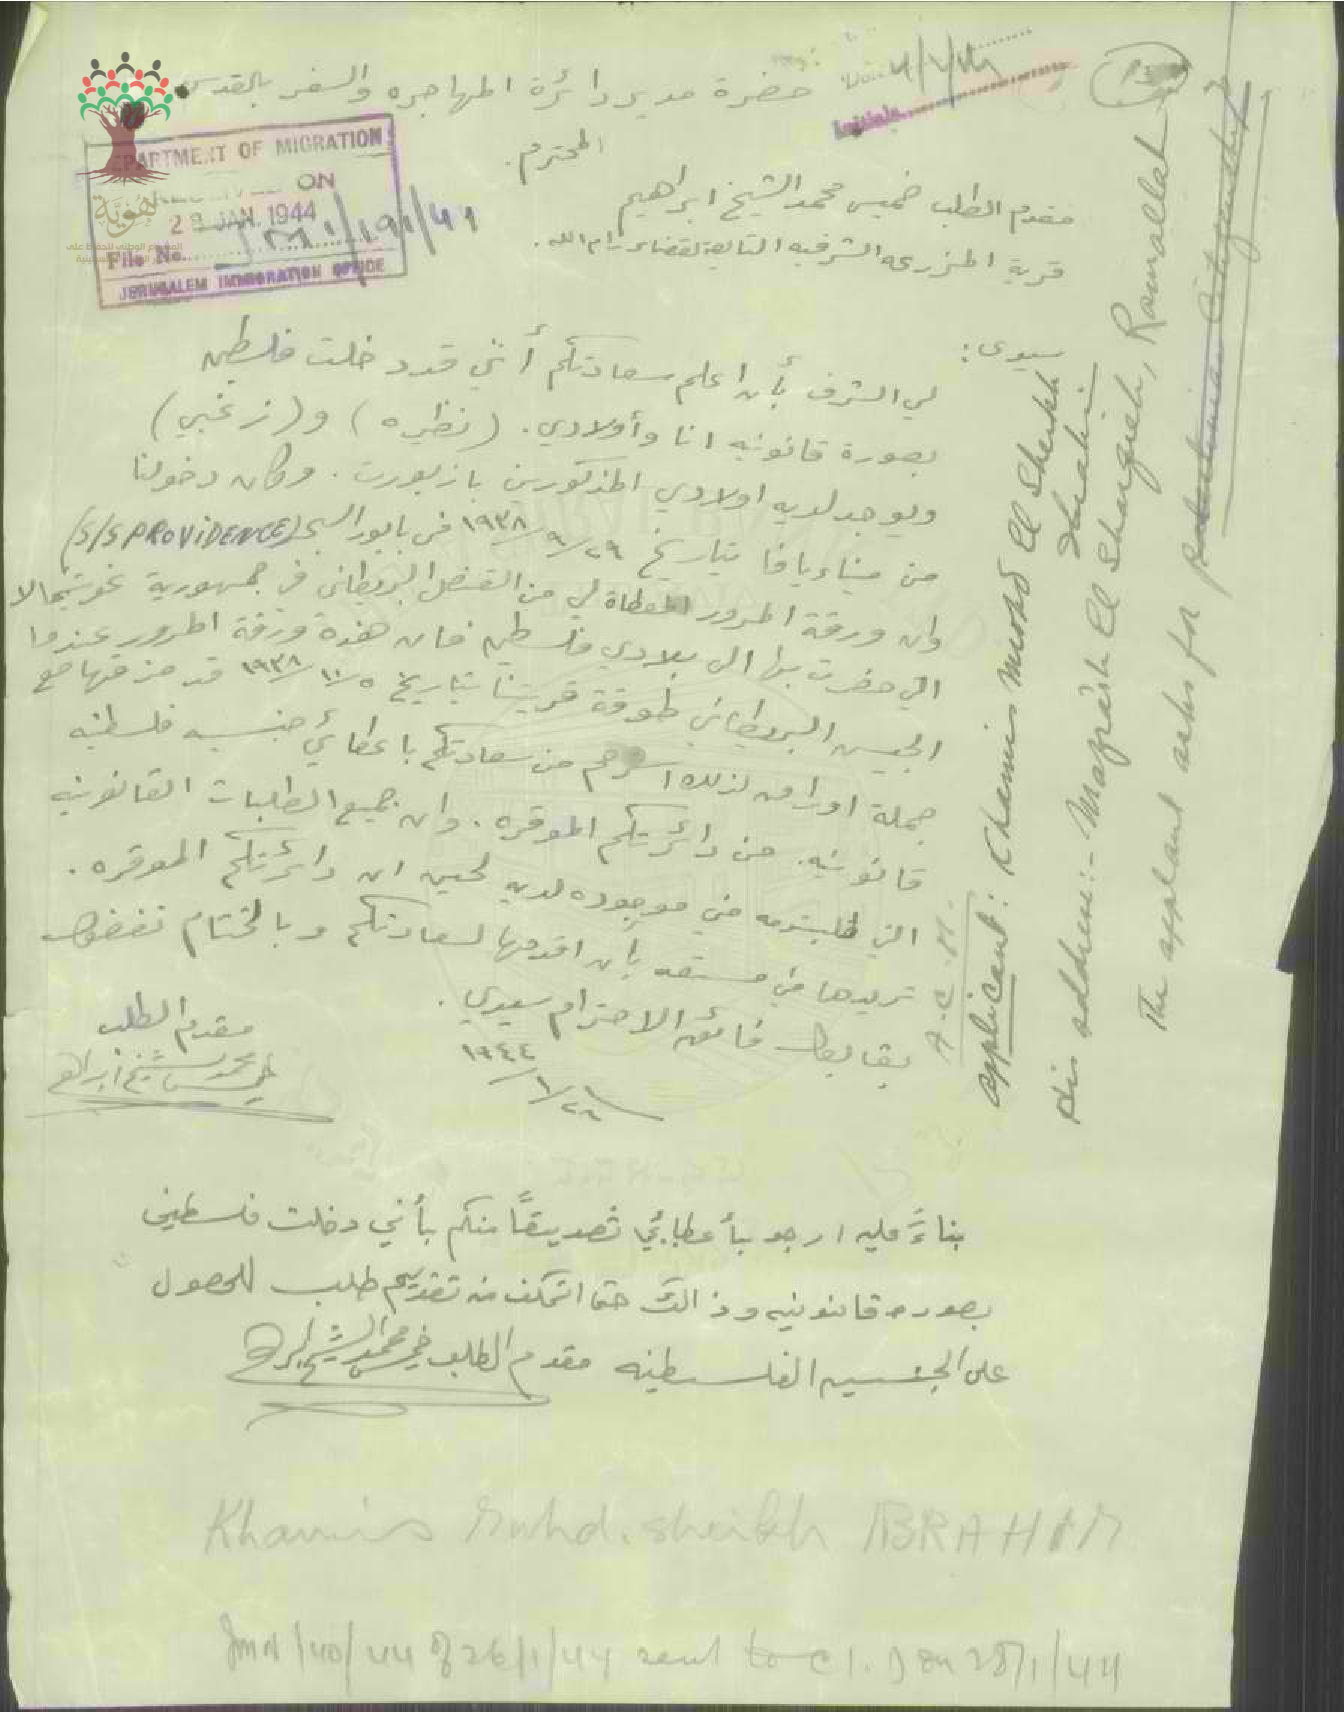 حضرة مدير دائرة المهاجره والسفر بالقدس
المحترم.
مقدم الطلب خميس محمد الشيخ ابراهيم
قرية المزرعه الشرقيه التابعة لقضاء رام الله.
DEPARTMENT OF MIGRATION
ON
28 JAN. 1944
File No.
191/41
JERUSALEM IMMIGRATION OFFICE
Initials
هُويّة
سيدي:
لي الشرف بأن اعلم سعادتكم أنني قد دخلت فلسطين
بصورة قانونيه انا وأولادي. (نظيره) و(زغبي)
ويوجد لديه اولادي المذكورين بازبورت. وكان دخولنا
من ميناء يافا بتاريخ ٢٩/٩/١٩٣٨ في بابور البحر (S/S PROVIDENCE)
وان ورقة المرور المعطاة لي من القنصل البريطاني في جمهورية غويتمالا
التي حضرت بها الى بلادي فلسطين فان هذه ورقة المرور عندما
الجيش البريطاني طوقة قريتنا بتاريخ ٥/١٠/١٩٣٨ قد مزقها مع
جملة اوراق لذلك استرحم من سعادتكم باعطائي جنسيه فلسطنيه
قانونيه. من دائرتكم الموقره. وان جميع الطلبات القانونيه
التي طلبتومه مني موجوده لديه لحين ان دائرتكم الموقره.
تريدها مستعد بأن اقدمها لسعادتكم وبالختام تفضلو
بقابول فائق الاحترام سيدي.
٢٦/١/١٩٤٤
مقدم الطلب
خميس محمد شيخ ابراهيم
A.C.M.
applicant: Khamis Mohd El Sheikh
Ibrahim
His address:- Mazra'h El Sharqieh, Ramallah
The applicant asks for Palestinian Citizenship
بناءً عليه ارجو بأعطائي تصديقاً منكم بأني دخلت فلسطين
بصوره قانونيه وذالك حتى اتمكن من تقديم طلب للحصول
على الجنسيه الفلسطنيه مقدم الطلب خميس محمد الشيخ ابراهيم
Khamis Muhd. Sheikh ABRAHIM
/40/44 of 26/1/44 sent to C.I.D on 28/1/44